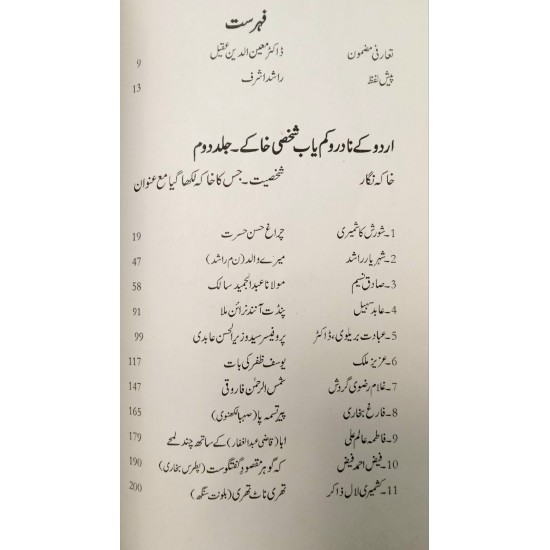 فہرست
تعارفی مضمون ڈاکٹر معین الدین عقیل 9
پیش لفظ راشد اشرف 13
اردو کے نادر و کم یاب شخصی خاکے۔ جلد دوم
خاکہ نگار شخصیت۔ جس کا خاکہ لکھا گیا مع عنوان
1۔ شورش کاشمیری چراغ حسن حسرت 19
2۔ شہریار راشد میرے والد (ن م راشد) 47
3۔ صادق نسیم مولانا عبدالمجید سالک 58
4۔ عابد سہیل پنڈت آنند نرائن ملا 91
5۔ عبادت بریلوی، ڈاکٹر پروفیسر سید وزیر الحسن عابدی 99
6۔ عزیز ملک یوسف ظفر کی بات 117
7۔ غلام رضوی گردش شمس الرحمٰن فاروقی 147
8۔ فارغ بخاری پیر تسمہ پا (صہبا لکھنوی) 165
9۔ فاطمہ عالم علی ابا (قاضی عبدالغفار) کے ساتھ چند لمحے 179
10۔ فیض احمد فیض کہ گوہر مقصود گفتگوست (پطرس بخاری) 190
11۔ کشمیری لال ذاکر تھری ناٹ تھری (بلونت سنگھ) 200